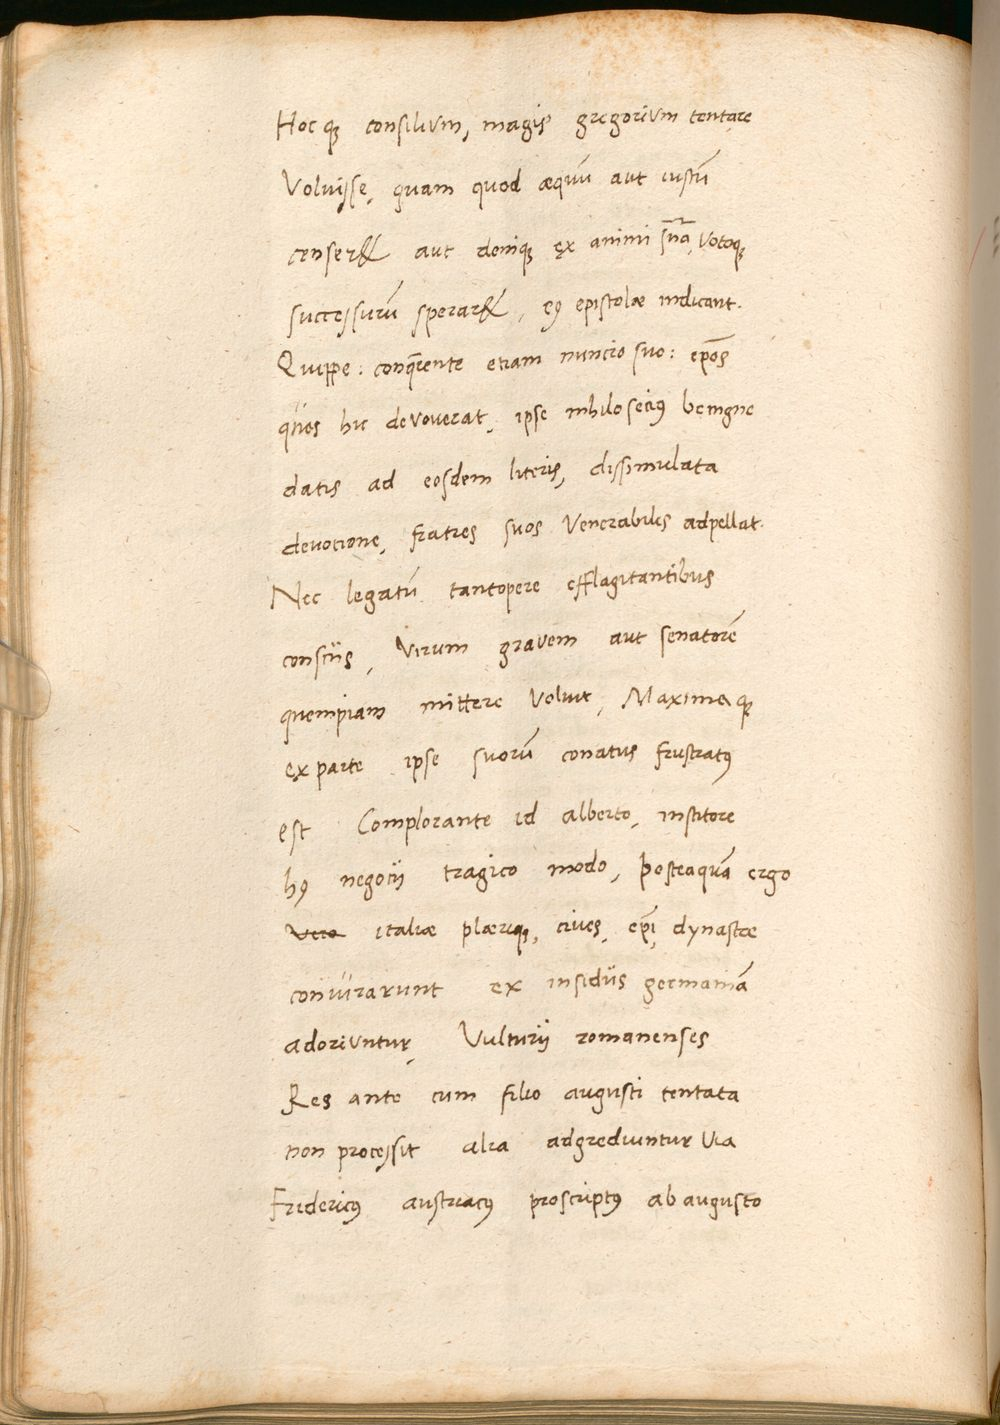 Hoc q; consilium, magis gregorium tentare
Voluisse, quam quod æquū aut iustū
censeret aut deniq; ex animi sn̄a, Votoq;
successurū speraret, eꝰ epistolæ indicant.
Quippe: conqrente etiam nuncio suo: epōs
quos hic devoverat, ipse nihilosecius benigne
datis ad eosdem literis, dissimulata
devocione, fratres suos Venerabiles adpellat.
Nec legatū tantopere efflagitantibus
consciis, Virum gravem aut senatorē
quempiam mittere Voluit, Maxima q;
ex parte ipse suorū conatus frustratꝰ
est Complorante id alberto, institore
hꝰ negocii tragico modo, Posteaquā ergo
vero italiæ plæriq;, cives, epī, dynastæ
coniurarunt ex insidiis germaniā
adoriuntur, Vulturii romanenses
Res ante cum filio augusti tentata
non processit alia adgrediuntur Via
Fridericꝰ austriacꝰ proscriptꝰ ab augusto